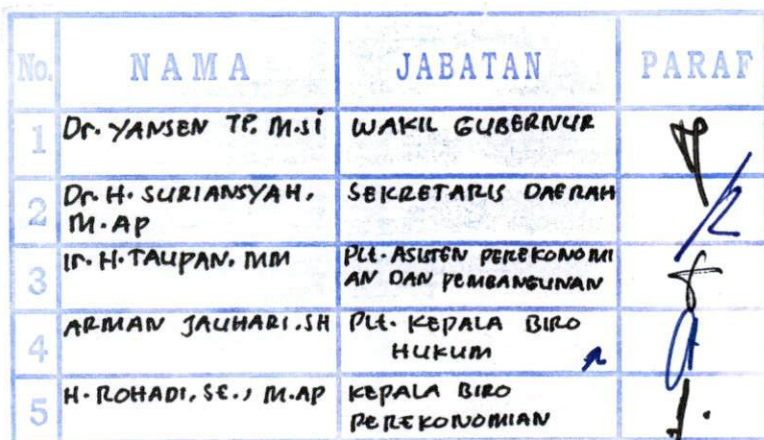 No. NAMA JABATAN PARAF
1 Dr. YANSEN TP. M.Si WAKIL GUBERNUR
2 Dr. H. SURIANSYAH, SEKRETARIS DAERAH
M.AP
3 Ir. H. TAUPAN. MM PLt. ASISTEN PEREKONOMI
AN DAN PEMBANGUNAN
4 ARMAN JAUHARI.SH PLt. KEPALA BIRO
HUKUM
5 H. ROHADI, SE., M.AP KEPALA BIRO
PEREKONOMIAN